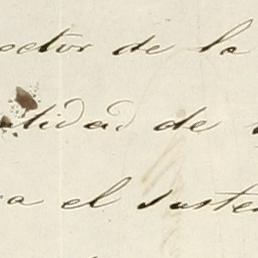 octor de la
tidad de
a el susten